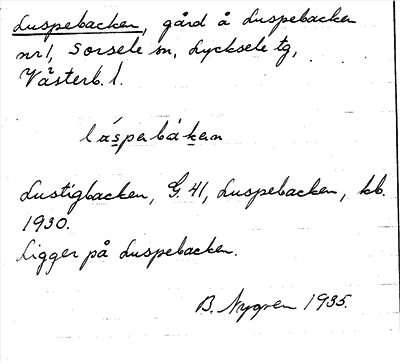 Luspebacken, gård å Luspebacken
nr 1, Sorsele sn, Lycksele tg,
Västerb. l.
láspebákan
Lustigbacken, G. 41, Luspebacken, kb.
1930.
Ligger på Luspebacken.
B. Nygren 1935.